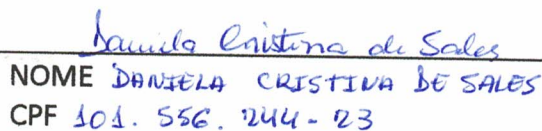 Daniela Cristina de Sales
NOME DANIELA CRISTINA DE SALES
CPF 101. 556. 244 - 23